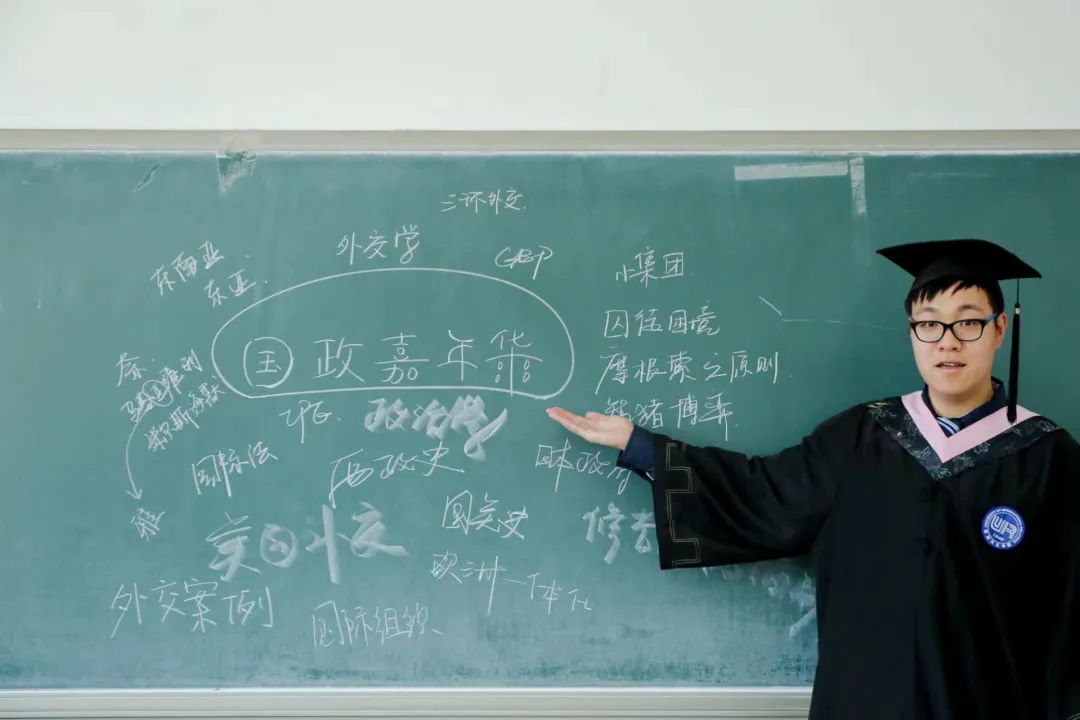 三环外交
外交学
东南亚
东亚
小集团
囚徒困境
国 政嘉年华
摩根索六原则
智猪博弈
政治学
西政史
国际法
国关史
美日外交
欧洲一体化
外交案例
国际组织